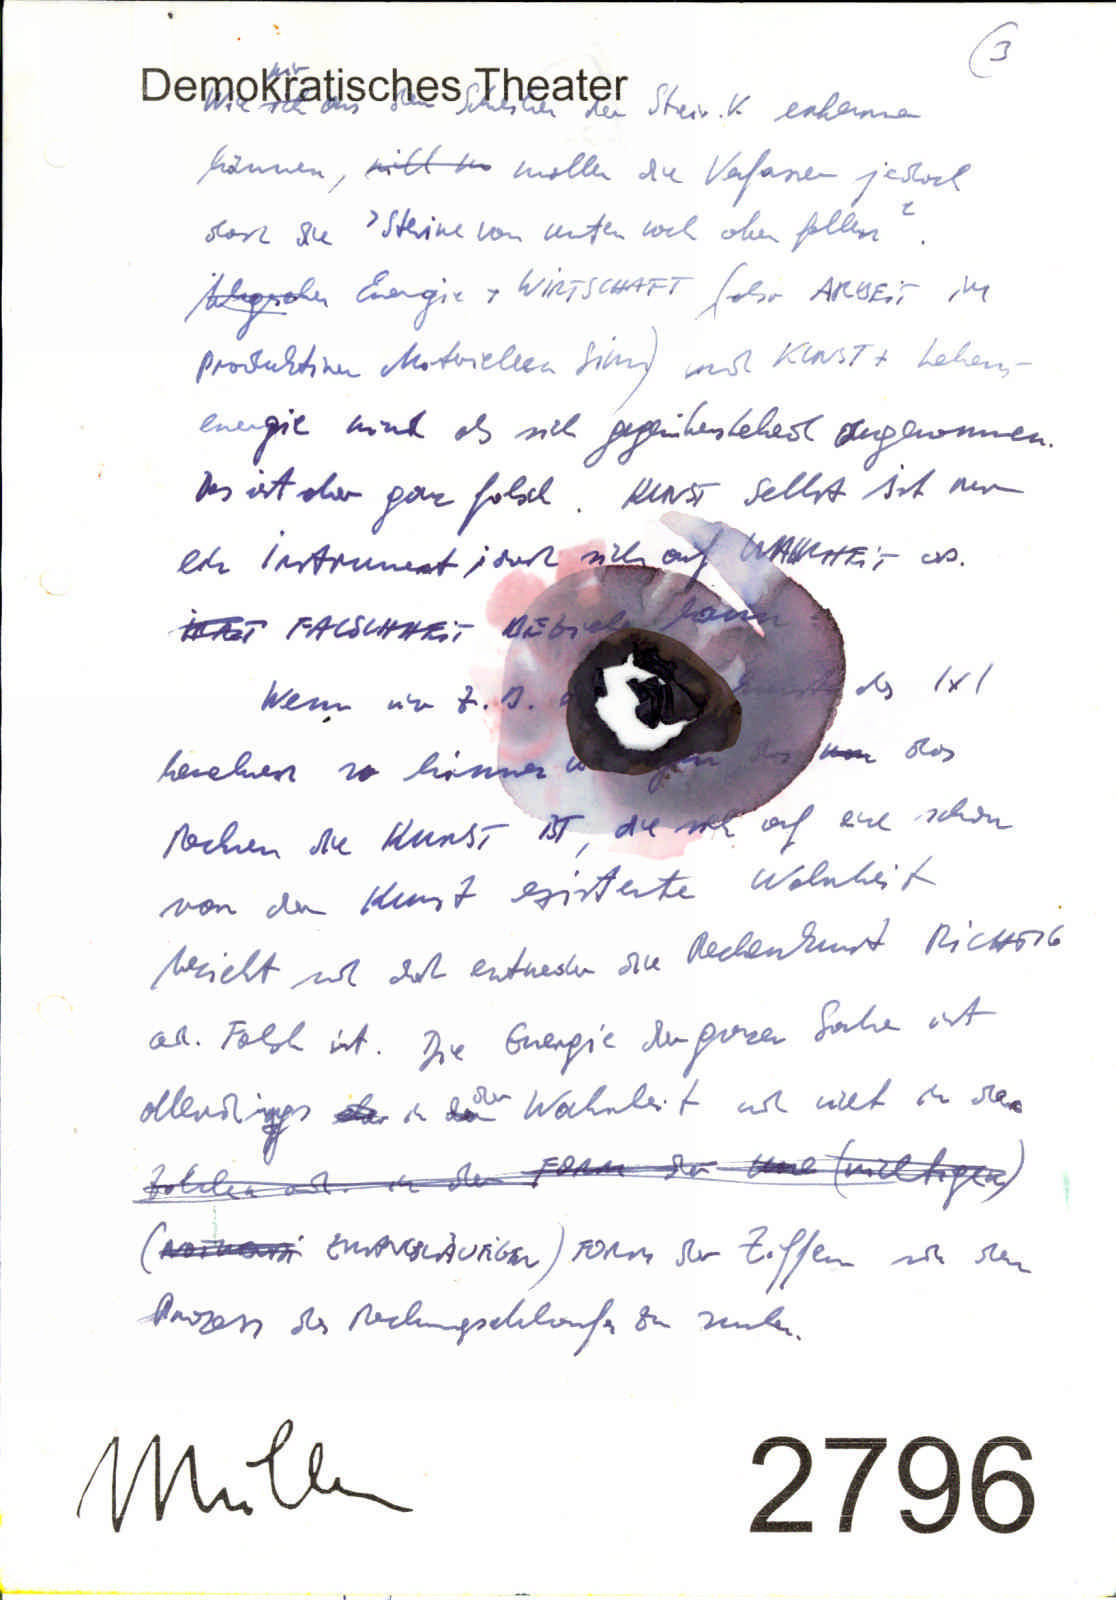 3
Demokratisches Theater
wir
Wie aus dem der Stein. K erkennen
können, wollen die Verfasser jedoch
dass die "Steine von unten nach oben fallen".
Energie + WIRTSCHAFT (also ARBEIT im
produktiven Materiellen Sinn) und KUNST + Lebens-
energie wird als sich gegenüberstehend angenommen.
Das ist aber ganz falsch. KUNST selbst ist nur
ein Instrument, das sich auf WAHRHEIT od.
FALSCHHEIT BEziehen kann.
Wenn wir z.B. des 1x1
so können das das
Rechnen die KUNST IST, die sich auf eine schon
vor der Kunst existente Wahrheit
bezieht und dort entweder die Rechenkunst RICHTIG
od. Falsch ist. Die Energie der ganzen Sache ist
allerdings in der Wahrheit und nicht in den
Zahlen od. in der FORM der (nichtigen)
(ZWANGSLÄUFIGEN) FORM der Ziffern und dem
Prozess des zu suchen.
Müller
2796